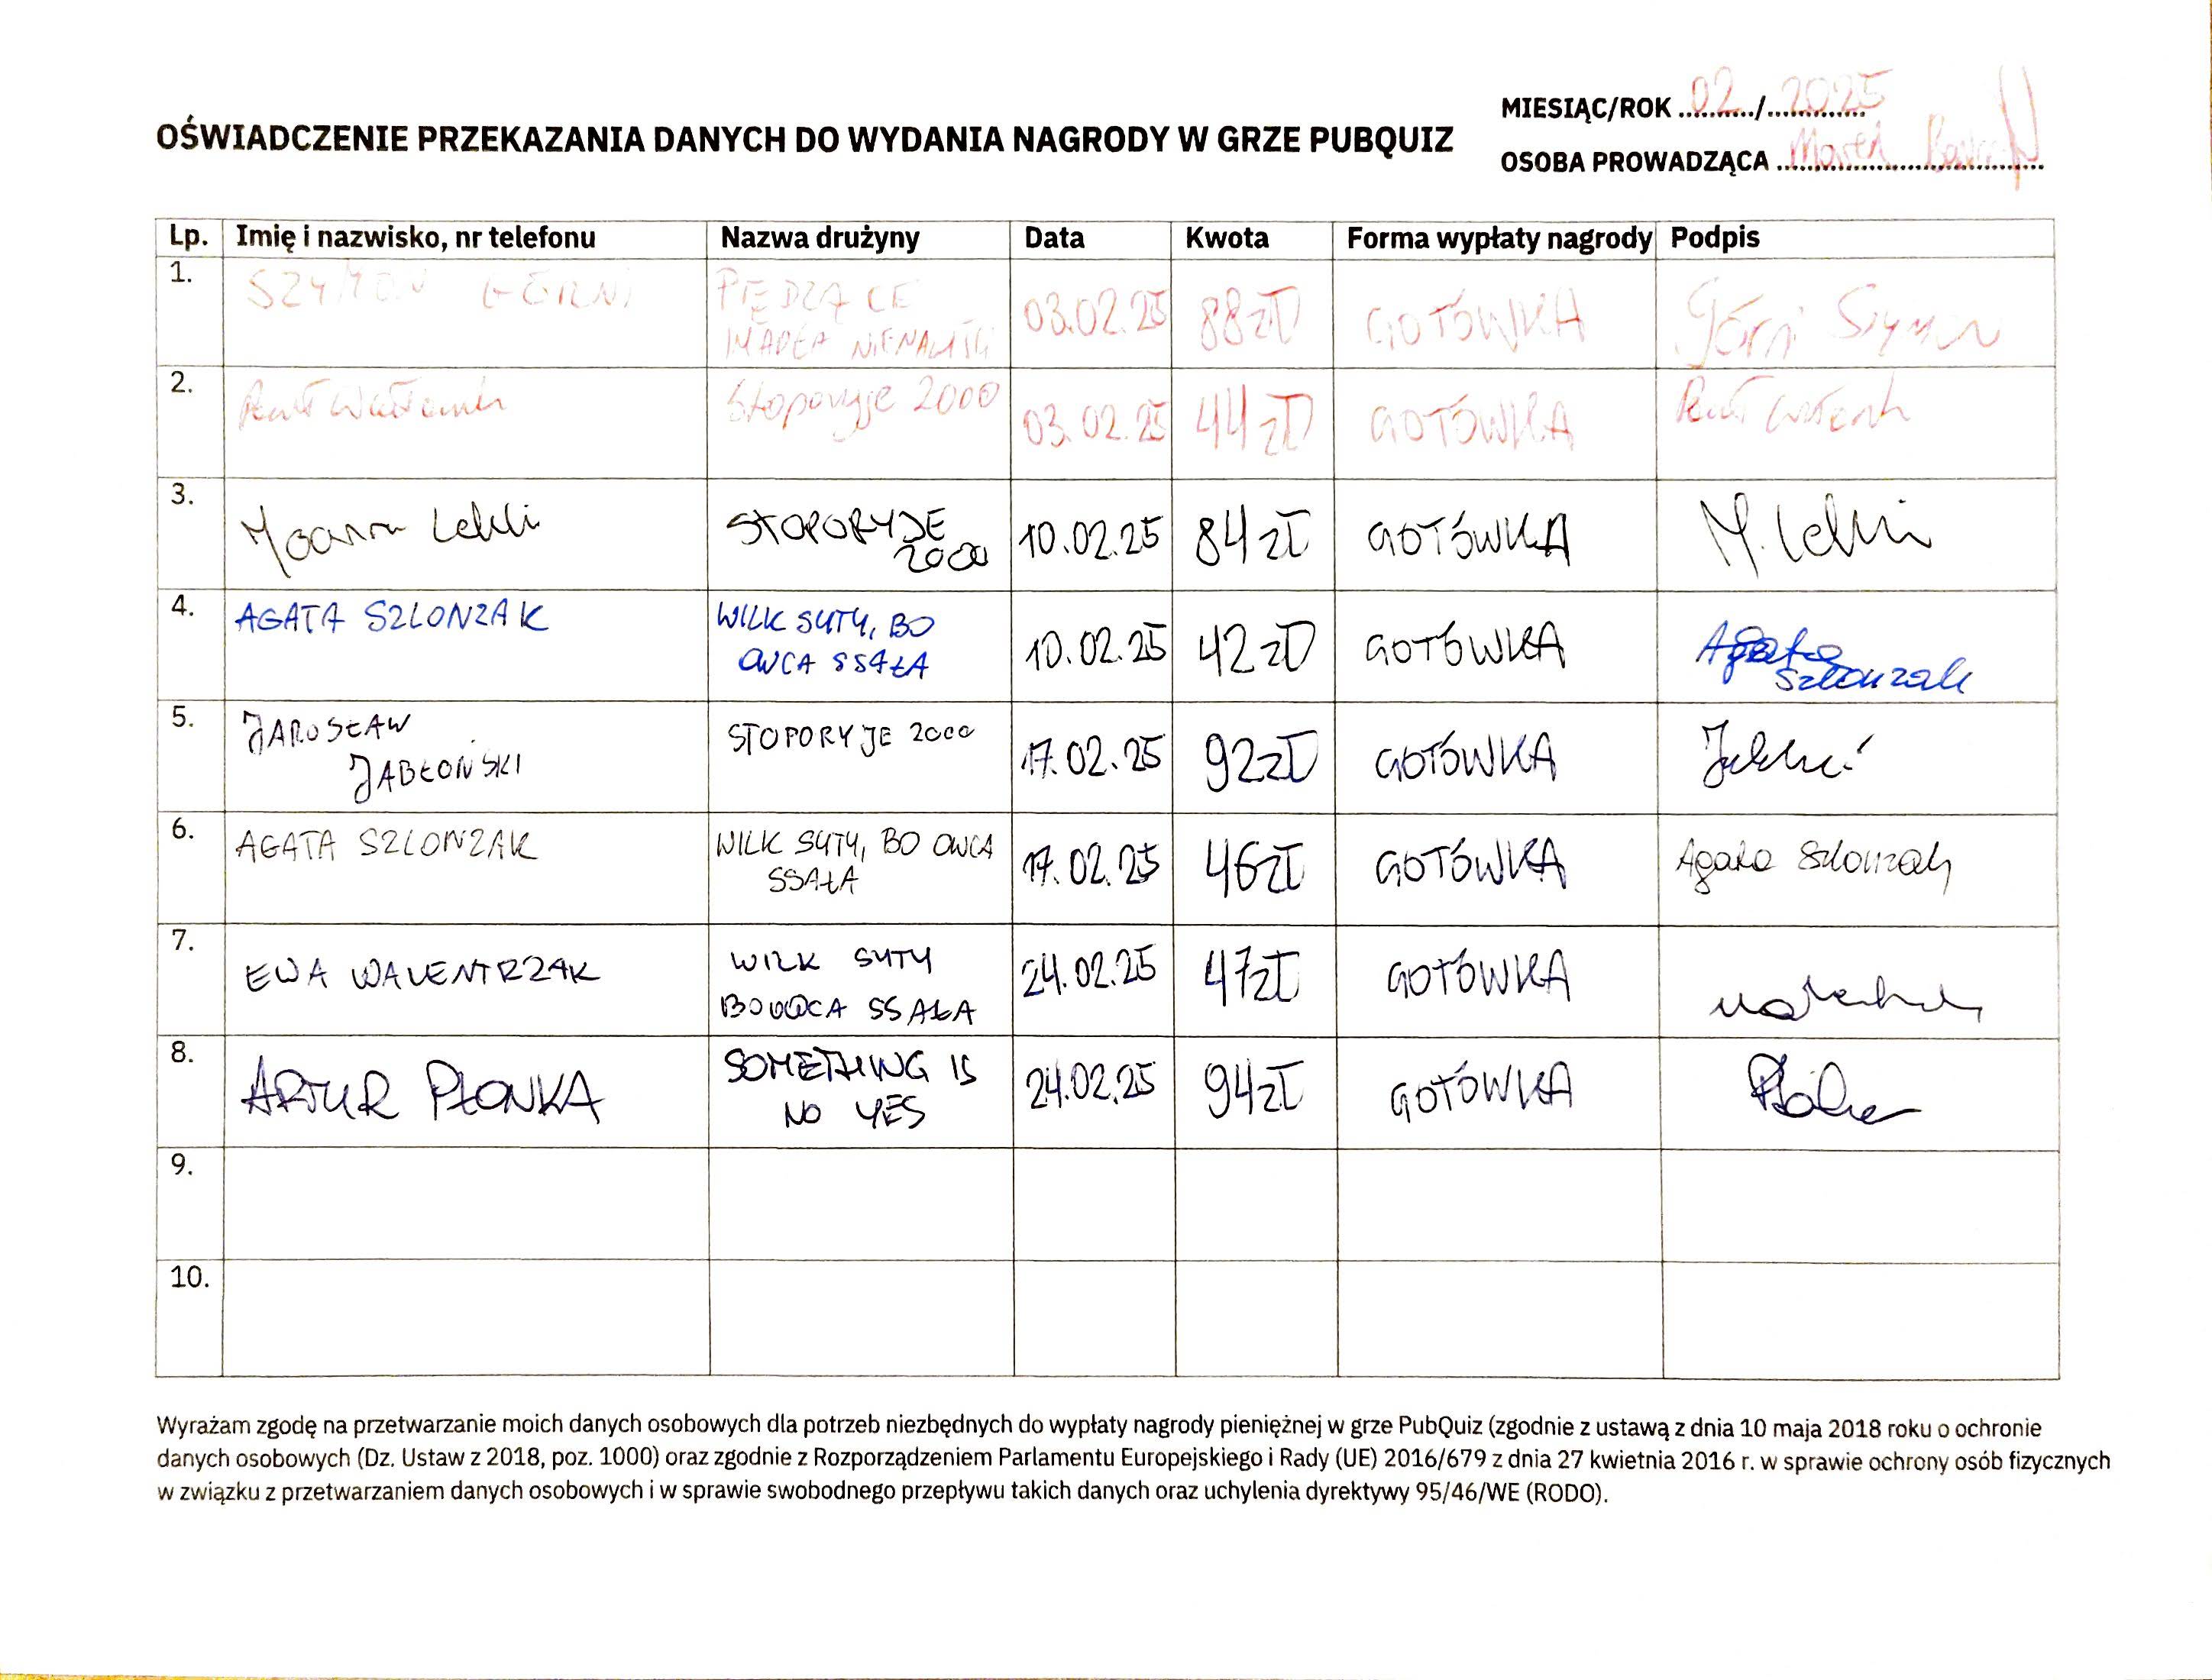 MIESIĄC/ROK 02/2025
OŚWIADCZENIE PRZEKAZANIA DANYCH DO WYDANIA NAGRODY W GRZE PUBQUIZ
OSOBA PROWADZĄCA Marek
Lp. Imię i nazwisko, nr telefonu Nazwa drużyny Data Kwota Forma wypłaty nagrody Podpis
1. SZYMON GÓRNI PĘDZĄCE 03.02.25 88zł GOTÓWKA Górni Szymon
IMADŁA NIENAWIŚCI
2. Stoporyje 2000 03.02.25 44zł GOTÓWKA
3. STOPORYJE 10.02.25 84zł GOTÓWKA
2000
4. AGATA SZLONZAK WILK SYTY, BO 10.02.25 42zł GOTÓWKA Agata
OWCA SSAŁA Szlonzak
5. JAROSŁAW STOPORYJE 2000 17.02.25 92zł GOTÓWKA
JABŁOŃSKI
6. AGATA SZLONZAK WILK SYTY, BO OWCA 17.02.25 46zł GOTÓWKA Agata Szlonzak
SSAŁA
7. EWA WALENTRZAK WILK SYTY 24.02.25 47zł GOTÓWKA
BO OWCA SSAŁA
8. ARTUR PŁONKA SOMETHING IS 24.02.25 94zł GOTÓWKA
NO YES
9.
10.
Wyrażam zgodę na przetwarzanie moich danych osobowych dla potrzeb niezbędnych do wypłaty nagrody pieniężnej w grze PubQuiz (zgodnie z ustawą z dnia 10 maja 2018 roku o ochronie
danych osobowych (Dz. Ustaw z 2018, poz. 1000) oraz zgodnie z Rozporządzeniem Parlamentu Europejskiego i Rady (UE) 2016/679 z dnia 27 kwietnia 2016 r. w sprawie ochrony osób fizycznych
w związku z przetwarzaniem danych osobowych i w sprawie swobodnego przepływu takich danych oraz uchylenia dyrektywy 95/46/WE (RODO).